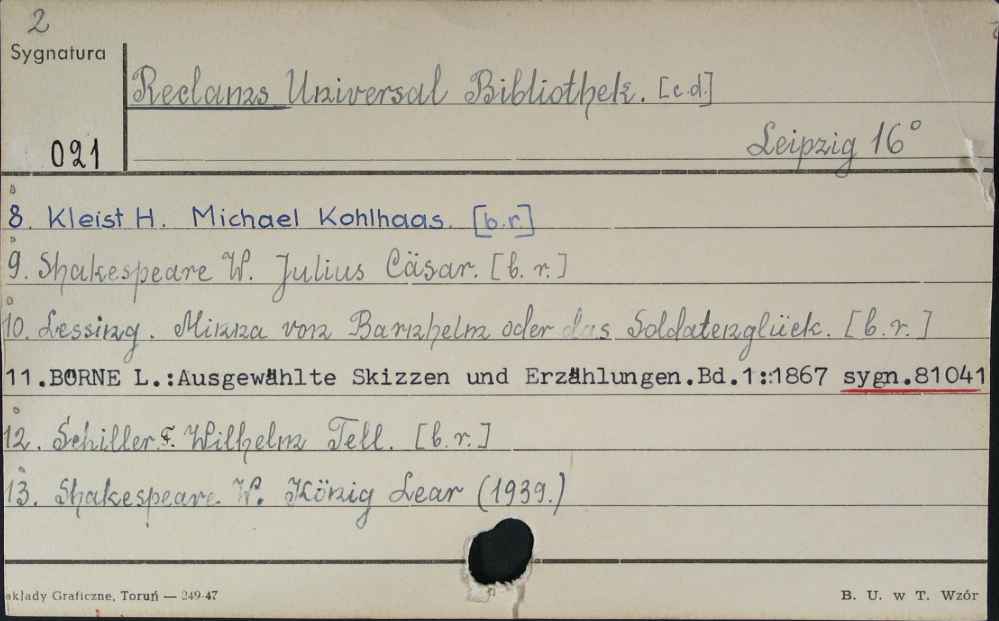 2
Sygnatura
Reclams Universal Bibliothek. [c.d.]
021
Leipzig 16°
8. Kleist H. Michael Kohlhaas. [b.r.]
9. Shakespeare W. Julius Cäsar. [b. r.]
10. Lessing. Minna von Barnhelm oder das Soldatenglück. [b. r.]
11.BÖRNE L.:Ausgewählte Skizzen und Erzählungen.Bd.1::1867 sygn.81041
12. Schiller F. Wilhelm Tell. [b. r.]
13. Shakespeare W. König Lear (1939.)
akłady Graficzne, Toruń — 249-47
B. U. w T. Wzór